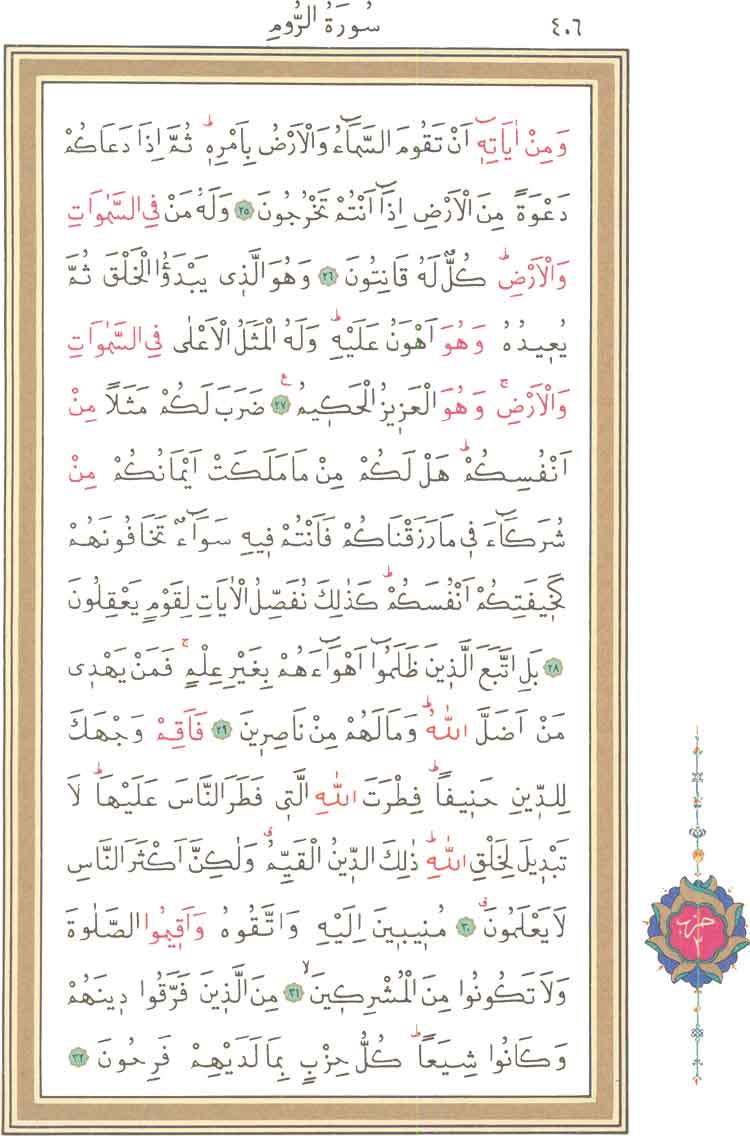 سُورَةُ الرُّومِ ٤٠٦
وَمِنْ اٰيَاتِه۪ٓ اَنْ تَقُومَ السَّمَٓاءُ وَالْاَرْضُ بِاَمْرِه۪ۜ ثُمَّ اِذَا دَعَاكُمْ
دَعْوَةً مِنَ الْاَرْضِ اِذَٓا اَنْتُمْ تَخْرُجُونَ ٢٥ وَلَهُ مَنْ فِي السَّمٰوَاتِ
وَالْاَرْضِۜ كُلٌّ لَهُ قَانِتُونَ ٢٦ وَهُوَ الَّذ۪ي يَبْدَؤُا الْخَلْقَ ثُمَّ
يُع۪يدُهُ وَهُوَ اَهْوَنُ عَلَيْهِۜ وَلَهُ الْمَثَلُ الْاَعْلٰى فِي السَّمٰوَاتِ
وَالْاَرْضِۚ وَهُوَ الْعَز۪يزُ الْحَك۪يمُ ٢٧ ضَرَبَ لَكُمْ مَثَلًا مِنْ
اَنْفُسِكُمْۜ هَلْ لَكُمْ مِنْ مَا مَلَكَتْ اَيْمَانُكُمْ مِنْ
شُرَكَٓاءَ ف۪ي مَا رَزَقْنَاكُمْ فَاَنْتُمْ ف۪يهِ سَوَٓاءٌ تَخَافُونَهُمْ
كَخ۪يفَتِكُمْ اَنْفُسَكُمْۜ كَذٰلِكَ نُفَصِّلُ الْاٰيَاتِ لِقَوْمٍ يَعْقِلُونَ
٢٨ بَلِ اتَّبَعَ الَّذ۪ينَ ظَلَمُٓوا اَهْوَٓاءَهُمْ بِغَيْرِ عِلْمٍۚ فَمَنْ يَهْد۪ي
مَنْ اَضَلَّ اللّٰهُۜ وَمَا لَهُمْ مِنْ نَاصِر۪ينَ ٢٩ فَاَقِمْ وَجْهَكَ
لِلدّ۪ينِ حَن۪يفًاۜ فِطْرَتَ اللّٰهِ الَّت۪ي فَطَرَ النَّاسَ عَلَيْهَاۜ لَا
تَبْد۪يلَ لِخَلْقِ اللّٰهِۜ ذٰلِكَ الدّ۪ينُ الْقَيِّمُۗ وَلٰكِنَّ اَكْثَرَ النَّاسِ
لَا يَعْلَمُونَۗ ٣٠ مُن۪يب۪ينَ اِلَيْهِ وَاتَّقُوهُ وَاَق۪يمُوا الصَّلٰوةَ
وَلَا تَكُونُوا مِنَ الْمُشْرِك۪ينَۙ ٣١ مِنَ الَّذ۪ينَ فَرَّقُوا د۪ينَهُمْ
وَكَانُوا شِيَعًاۜ كُلُّ حِزْبٍ بِمَا لَدَيْهِمْ فَرِحُونَ ٣٢
حزب
٢